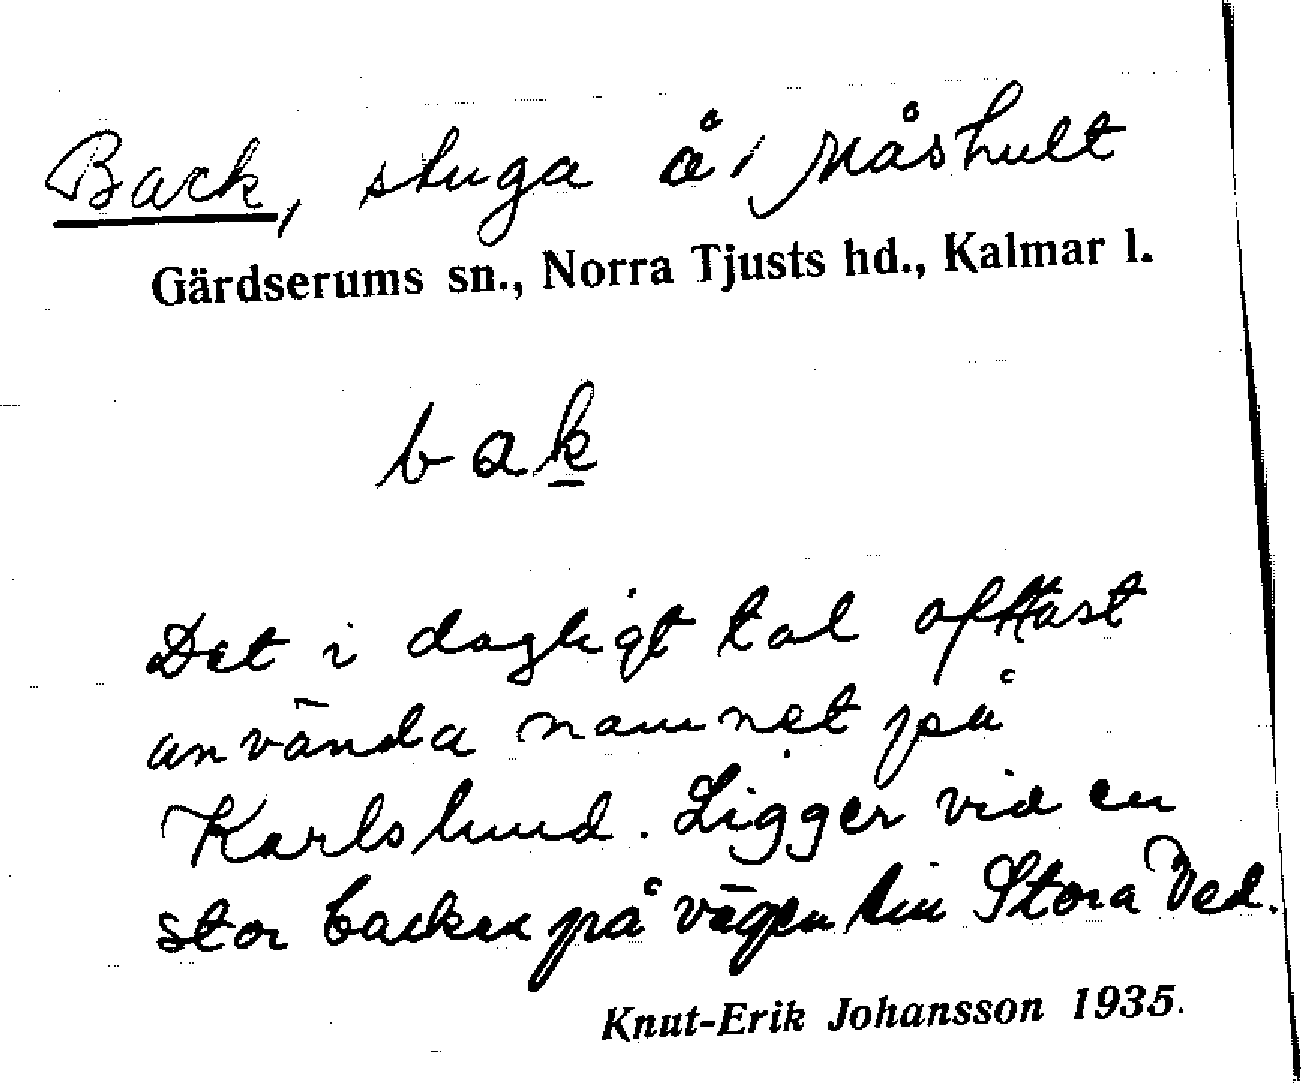 Back, stuga å, Måshult
Gärdserums sn., Norra Tjusts hd., Kalmar l.
bak
Det i dagligt tal oftast
använda namnet på
Karlslund. Ligger vid en
stor backen på vägen till Stora Ved.
Knut-Erik Johansson 1935.